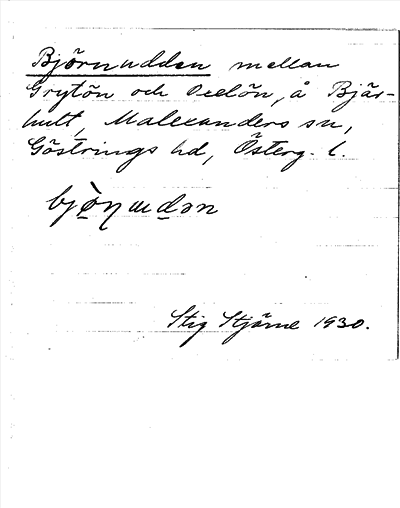 Björnudden mellan
Grytön och Oxelön, å Bjär-
hult, Malexanders sn,
Göstrings hd, Österg. l.
Stig Stjärne 1930.